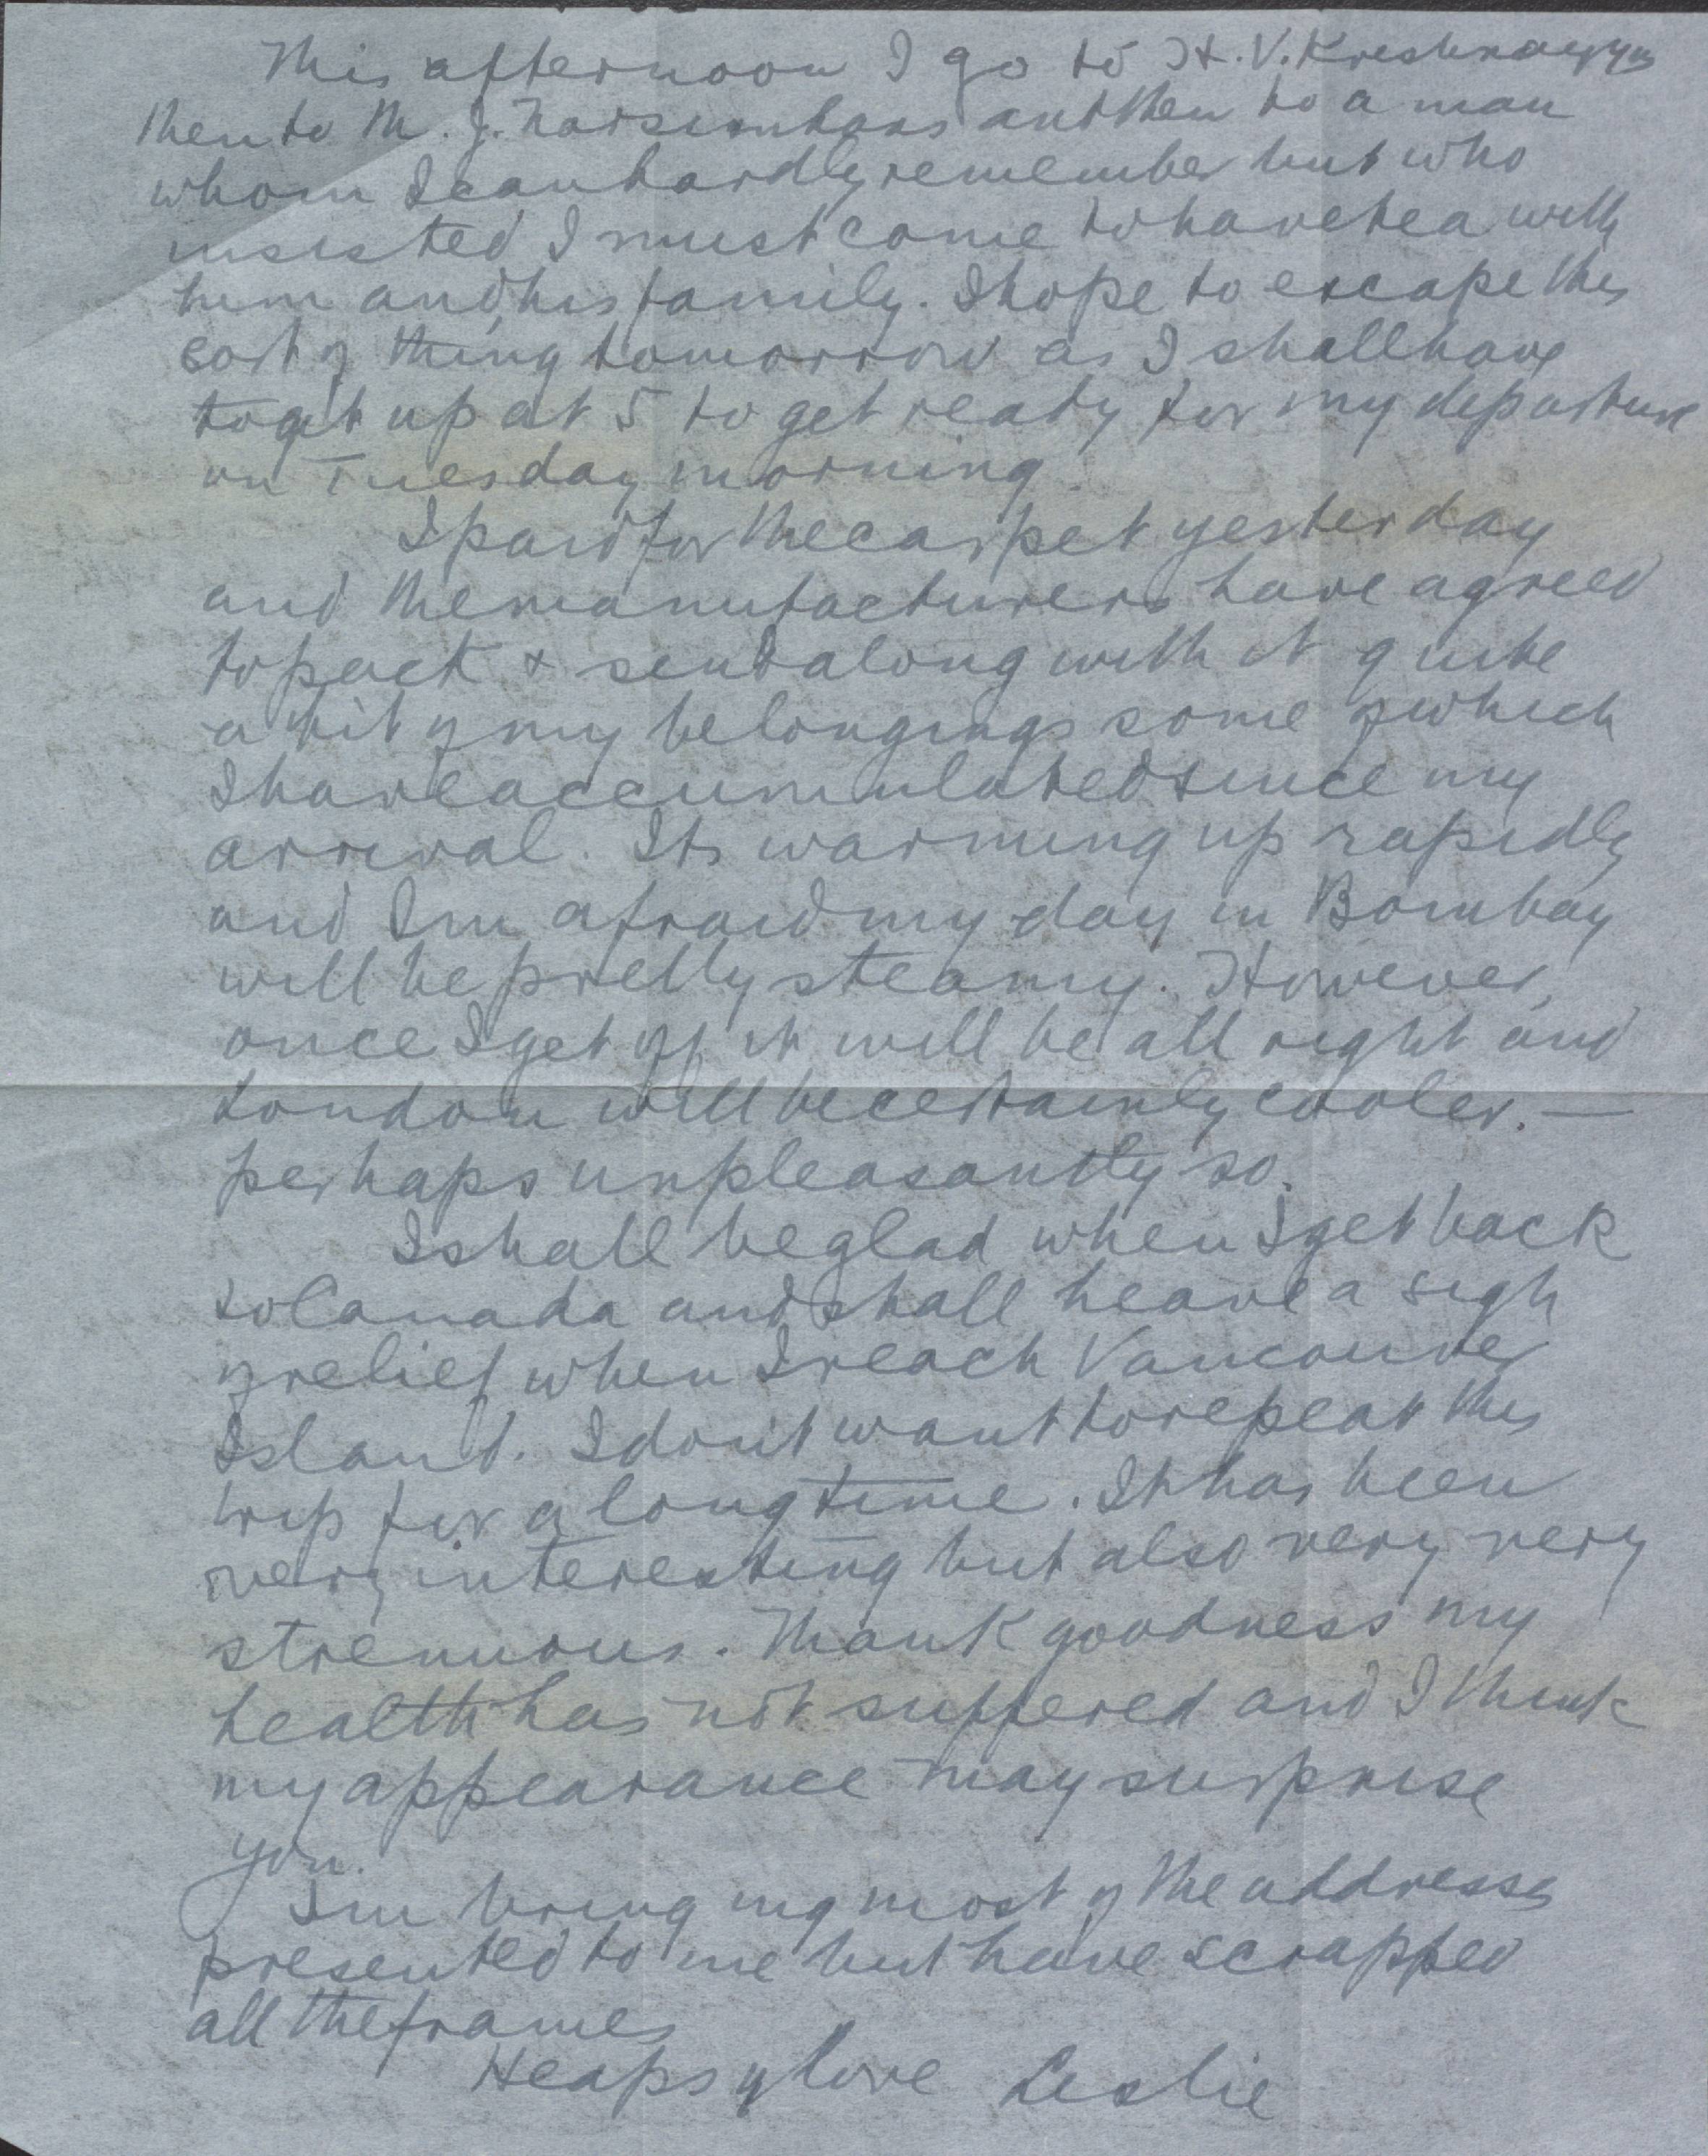 This afternoon I go to H. V. Kreshnayya
then to M. J. Narsimhans and then to a man
whom I can hardly remember but who
insisted I must come to have tea with
him and his family. I hope to escape this
sort of thing tomorrow as I shall have
to get up at 5 to get ready for my departure
on Tuesday morning.
I paid for the carpet yesterday
and the manufacturers have agreed
to pack & send along with it quite
a bit of my belongings some of which
I have accumulated since my
arrival. Its warming up rapidly
and Im afraid my day in Bombay
will be pretty steamy. However,
once I get off it will be all right and
London will be certainly cooler. —
perhaps unpleasantly so.
I shall be glad when I get back
to Canada and shall heave a sigh
of relief when I reach Vancouver
Island. I don't want to repeat this
trip for a long time. It has been
very interesting but also very very
strenuous. Thank goodness my
health has not suffered and I think
my appearance may surprise
you.
Im bringing most of the addresses
presented to me but have scrapped
all the frames
Heaps of love Leslie